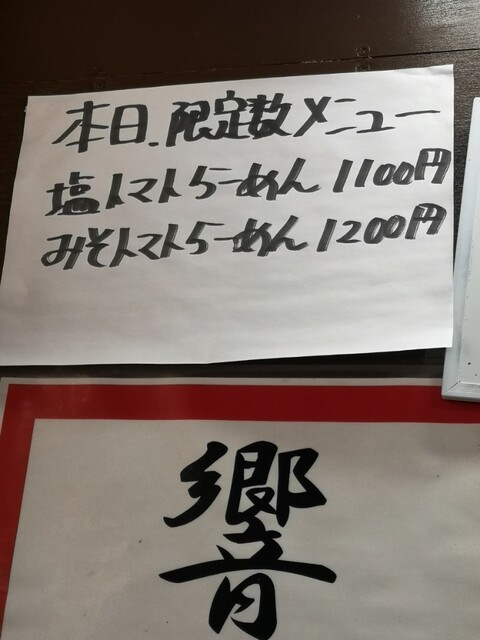 本日.限定数メニュー
塩トマトらーめん 1100円
みそトマトらーめん 1200円
響